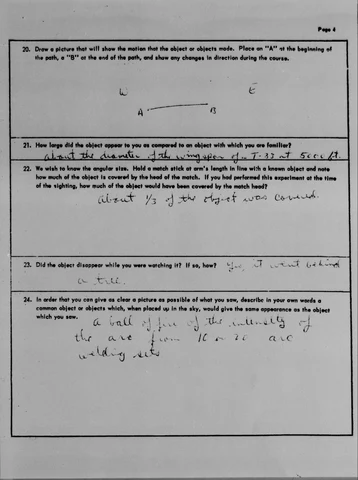 Page 4
20. Draw a picture that will show the motion that the object or objects made. Place an "A" at the beginning
of the path, a "B" at the end of the path, and show any changes in direction during the course.
W E
A B
21. How large did the object appear to you as compared to an object with which you are familiar?
about the diameter of the wingspan of a T-33 at 5000 ft.
22. We wish to know the angular size. Hold a match stick at arm's length in line with a known object and note
how much of the object is covered by the head of the match. If you had performed this experiment at the time
of the sighting, how much of the object would have been covered by the match head?
about 1/3 of the object was covered.
23. Did the object disappear while you were watching it? If so, how? Yes, it went behind
a tree.
24. In order that you can give as clear a picture as possible of what you saw, describe in your own words a
common object or objects which, when placed up in the sky, would give the same appearance as the object
which you saw.
a ball of fire of the intensity of
the arc from 10 or 20 arc
welding sets